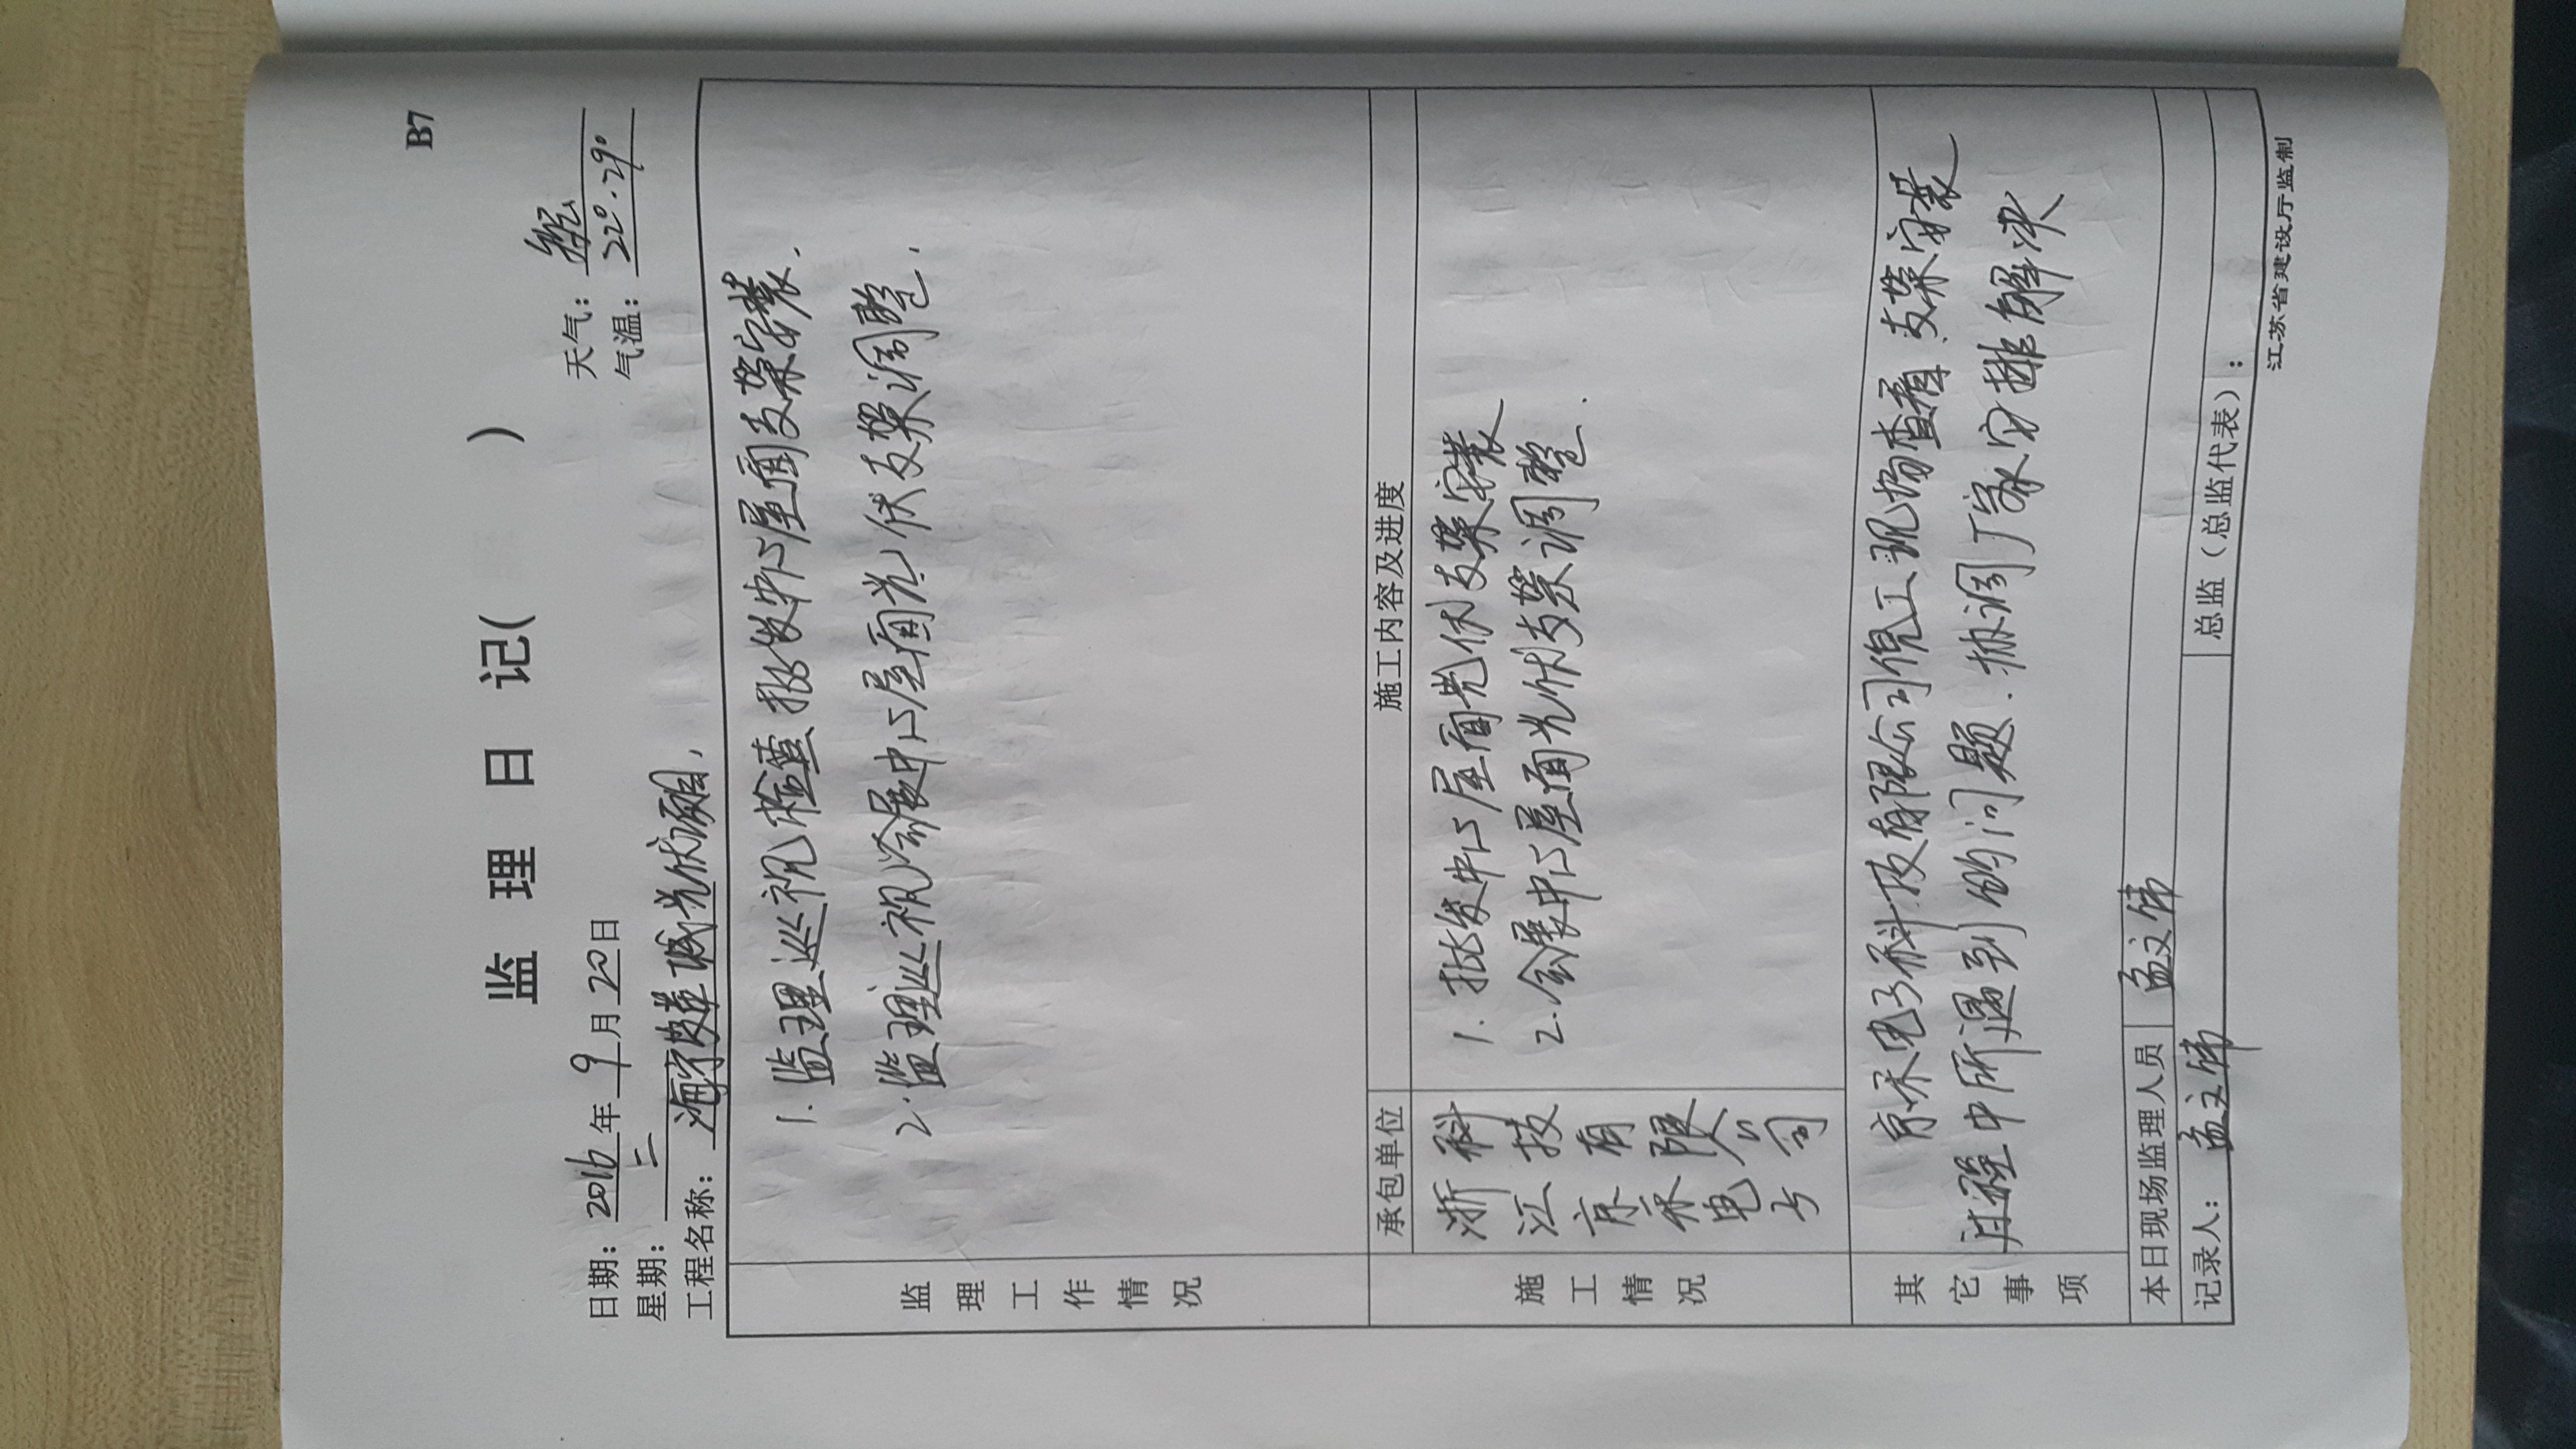 B7
监 理 日 记( )
日期：2016年9月20日 天气：
星期：二 气温：22°·29°
工程名称：海宁皮革城光伏项目.
监理工作情况
1. 监理巡视检查批发中心屋面支架安装.
2. 监理巡视会展中心屋面光伏支架调整.
施工情况
承包单位 施工内容及进度
浙江京禾电子科技有限公司
1. 批发中心屋面光伏支架安装
2. 会展中心屋面光伏支架调整.
其它事项
京禾电子科技有限公司倪工现场查看支架安装
过程中所遇到的问题.协调厂家安排解决
本日现场监理人员 孟文伟
记录人：孟文伟 总监（总监代表）：
江苏省建设厅监制